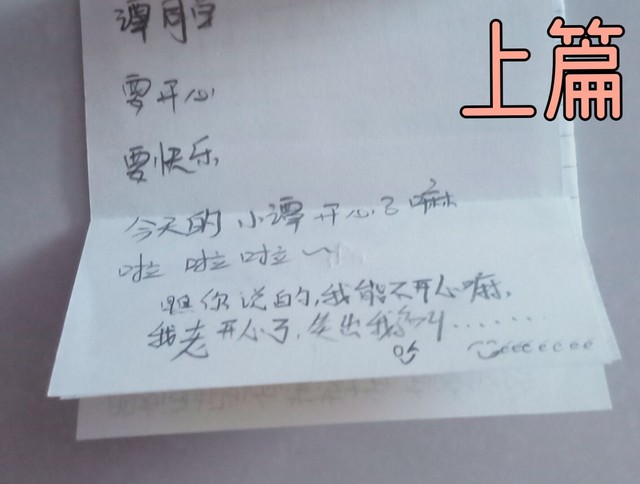 上篇
谭月白
要开心
要快乐
今天的 小谭 开心了嘛
啦 啦 啦～
你说的,我能不开心嘛,
我老开心了,笑出我
eeeeeee